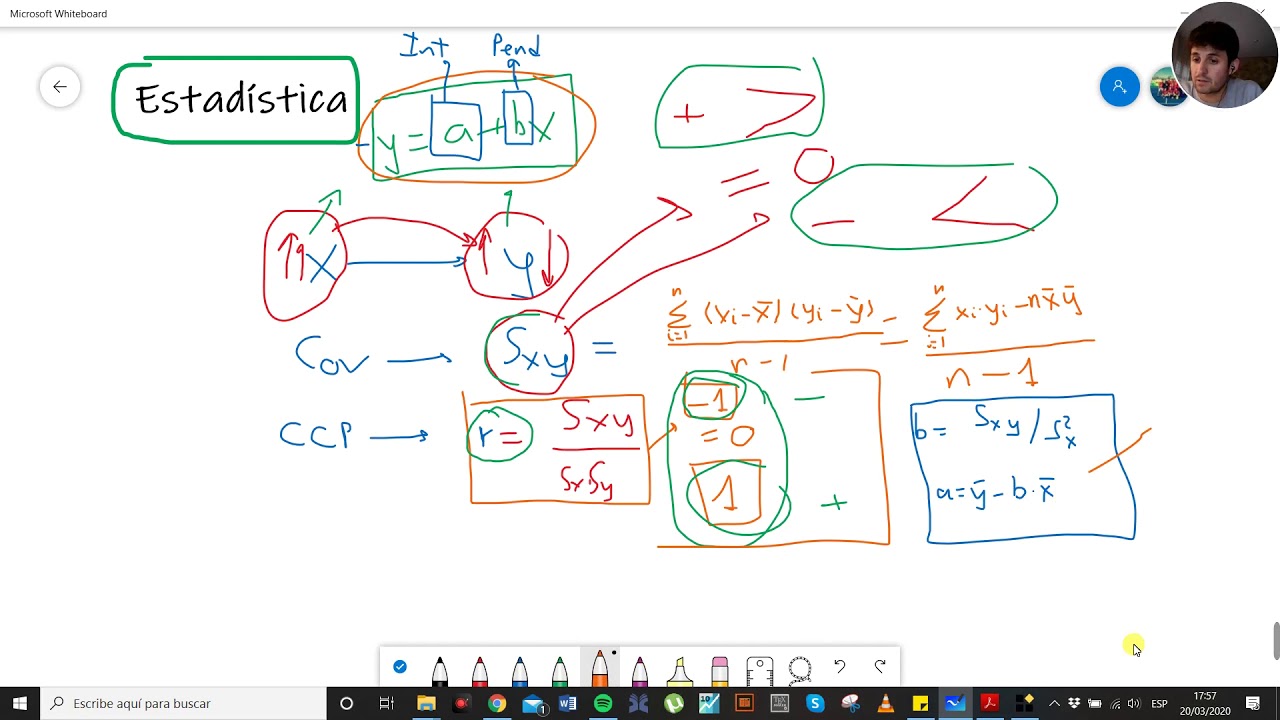 Microsoft Whiteboard
Int Pend
Estadística
y = a + bx
+ >
= 0
- <
x y
Cov → Sxy = \frac{\sum_{i=1}^{n} (xi - x̄)(yi - ȳ)}{n - 1} = \frac{\sum_{i=1}^{n} xi·yi - n x̄ ȳ}{n - 1}
CCP → r = \frac{Sxy}{SxSy}
-1 -
= 0
1 +
b = Sxy / S²x
a = ȳ - b · x̄
Escribe aquí para buscar
ESP
17:57
20/03/2020